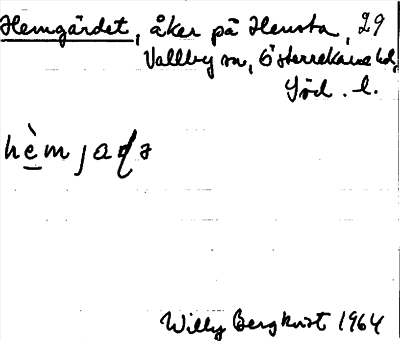 Hemgärdet, åker på Hensta, 29
Vallby sn, Österrekarne hd,
Söd. l.
hèm ja
Willy Bergkvist 1964